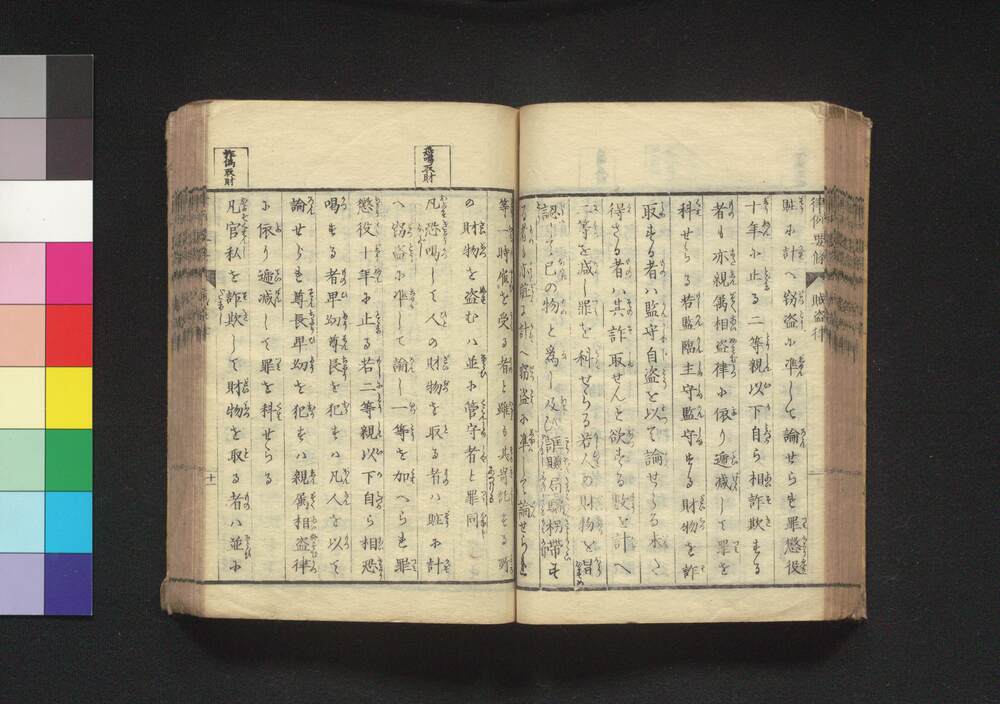 律例要條　賊盗律
贓に計へ窃盗に準して論せらる罪懲役
十年に止る二等親以下自ら相詐欺する
者も亦親属相盗律に依り逓減して罪を
科せらる若監臨主守監守する財物を詐
取する者ハ監守自盗を以て論せらる未た
得さる者ハ其詐取せんと欲する数を計へ
二等を減し罪を科せらる若人の財物を冒
認して己の物と為し及ひ誆賺局騙拐帯す
る者も亦贓に計へ窃盗に準して論せらる
等一時雇を受る者と雖も其寄託する所
の財物を盗むハ並に管守者と罪同し
恐喝取財
凡恐喝して人の財物を取る者ハ贓に計
へ窃盗に準して論し一等を加へらる罪
懲役十年に止る若二等親以下自ら相恐
喝する者卑幼尊長を犯すハ凡人を以て
論せらる尊長卑幼を犯すハ親属相盗律
に依り逓減して罪を科せらる
詐偽取財
凡官私を詐欺して財物を取る者ハ並に
十一